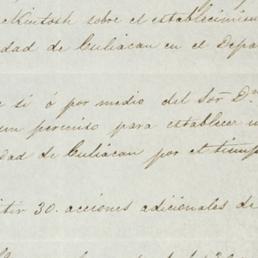 Kintosh sobre el establecimien
dad de Culiacan en el Depa
si ó por medio del Sor Dn
un permiso para establecer u
dad de Culiacan por el tiemp
itir 30. acciones adicionales de